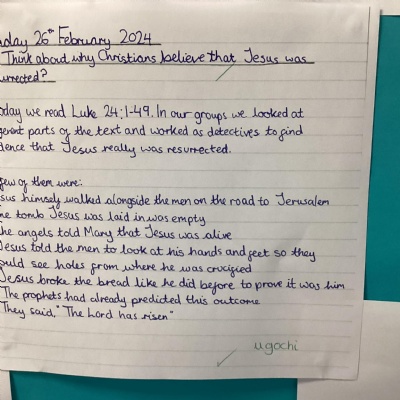 day 26th February 2024
Think about why Christians believe that Jesus was
urrected?
oday we read Luke 24:1-49. In our groups we looked at
ferent parts of the text and worked as detectives to find
dence that Jesus really was resurrected.
few of them were:
sus himself walked alongside the men on the road to Jerusalem
he tomb Jesus was laid in was empty
he angels told Mary that Jesus was alive
Jesus told the men to look at his hands and feet so they
ould see holes from where he was crucified
Jesus broke the bread like he did before to prove it was him
The prophets had already predicted this outcome
They said, "The Lord has risen"
ugochi